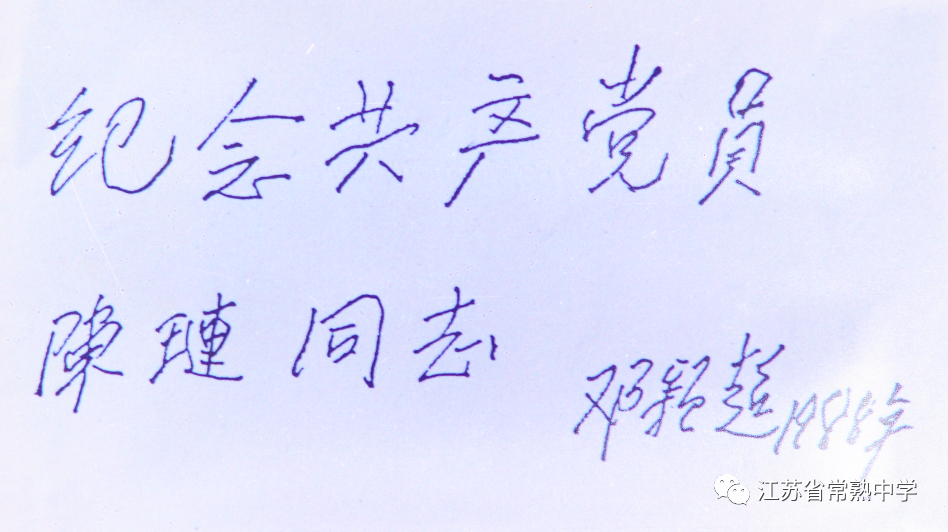 纪念共产党员
陳璉同志
邓颖超 1988年
江苏省常熟中学